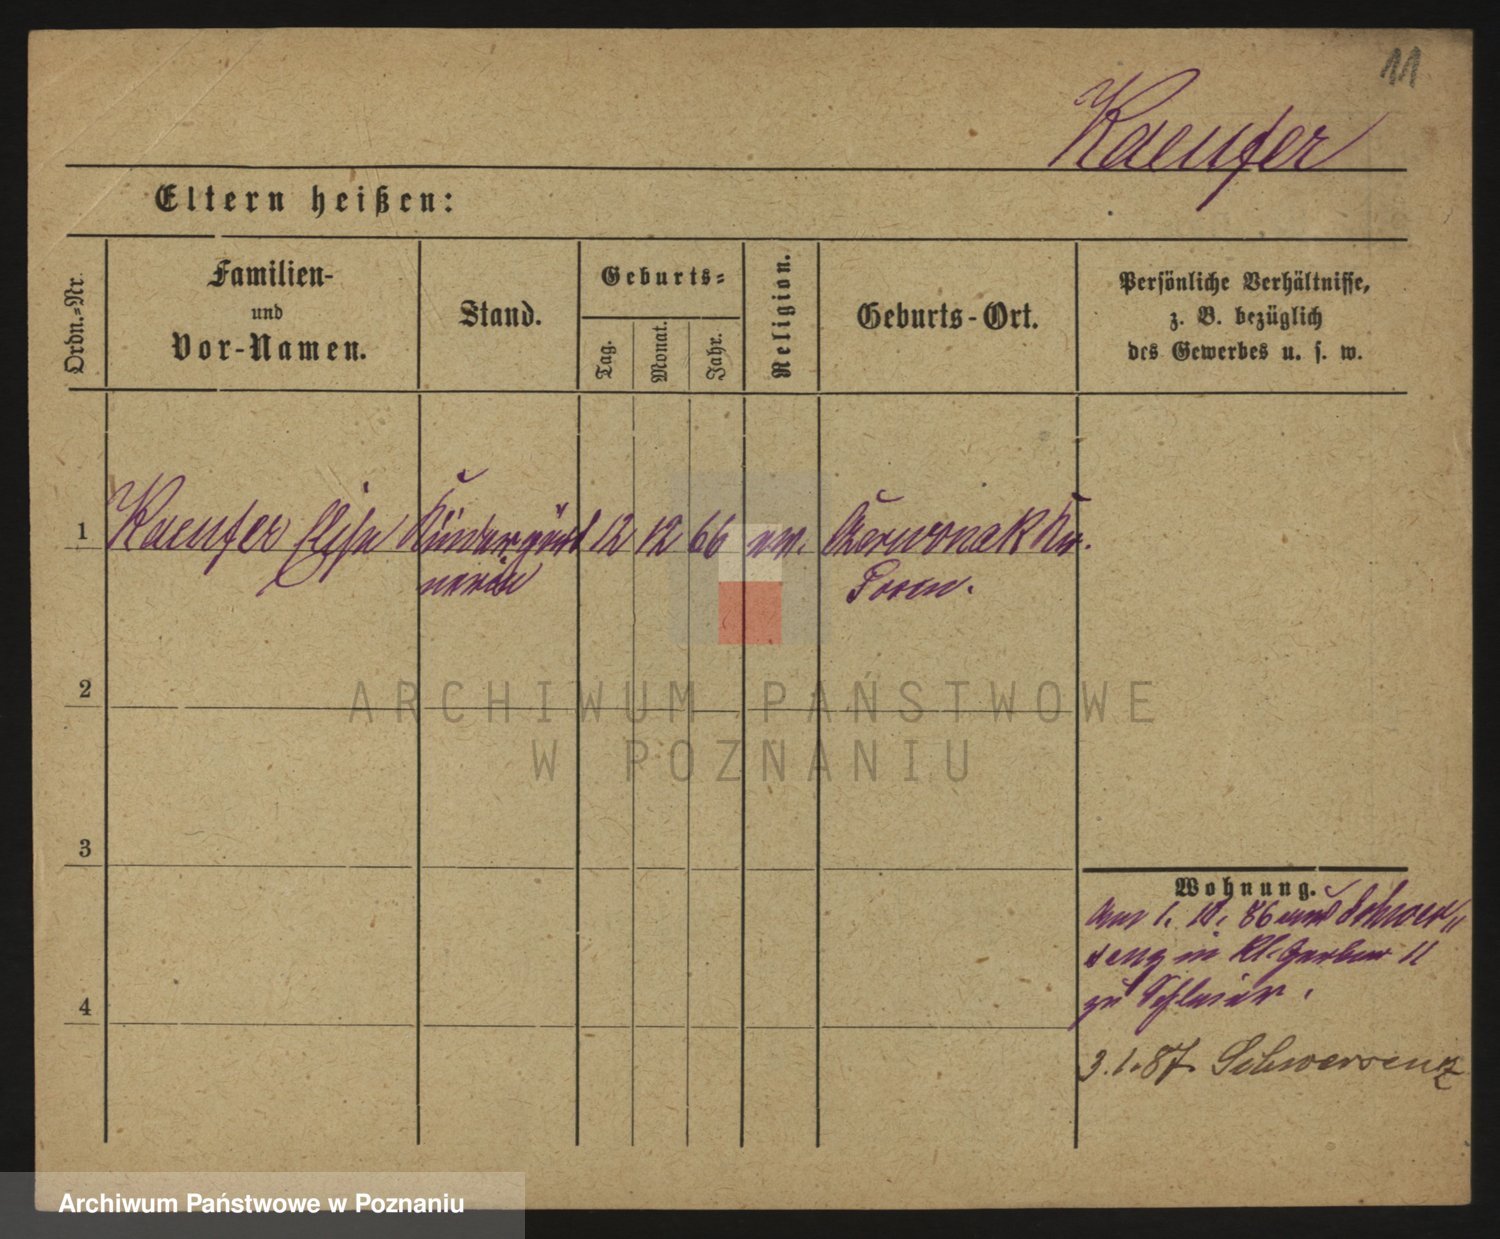 11
Kaeufer
Eltern heißen:
Ordn.-Nr.
Familien-
und
Vor-Namen.
Stand.
Geburts-
Tag.
Monat.
Jahr.
Religion.
Geburts-Ort.
Persönliche Verhältnisse,
z. B. bezüglich
des Gewerbes u. s. w.
1 Kaeufer Elise Kindergärt 12 12 66 ev. Czerwonak Kr.
nerin Posen.
2
ARCHIWUM PAŃSTWOWE
W POZNANIU
3
Wohnung.
1. 10. 86 aus Schwer„
senz in Kl. Gerber 11
zu
4
3.1.87. Schwersenz
Archiwum Państwowe w Poznaniu